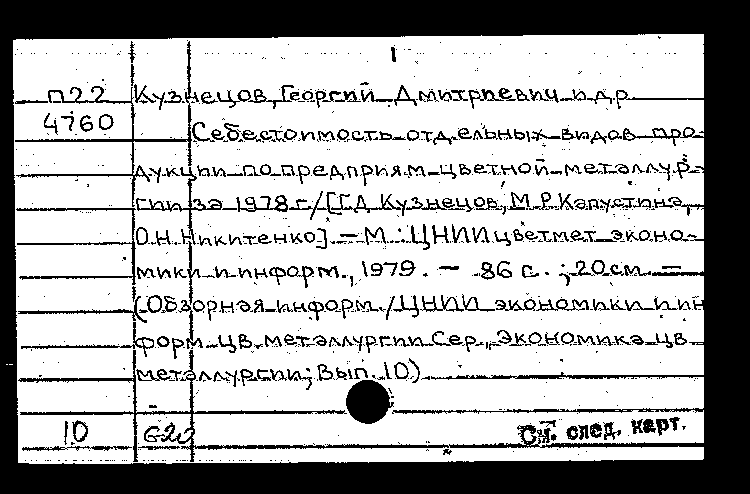 1
П22 Кузнецов, Георгий Дмитриевич и др.
4760 Себестоимость отдельных видов про-
дукции по предприям цветной металлур-
гии за 1978 г./[Г.Д. Кузнецов, М.Р. Капустина,
О.Н. Никитенко] – М.: ЦНИИцветмет эконо-
мики и информ., 1979. – 86 с.; 20см –
(Обзорная информ./ЦНИИ экономики и ин
форм. цв. металлургии Сер., Экономика цв
металлургии; Вып. 10)
10 G-20 См. след. карт.